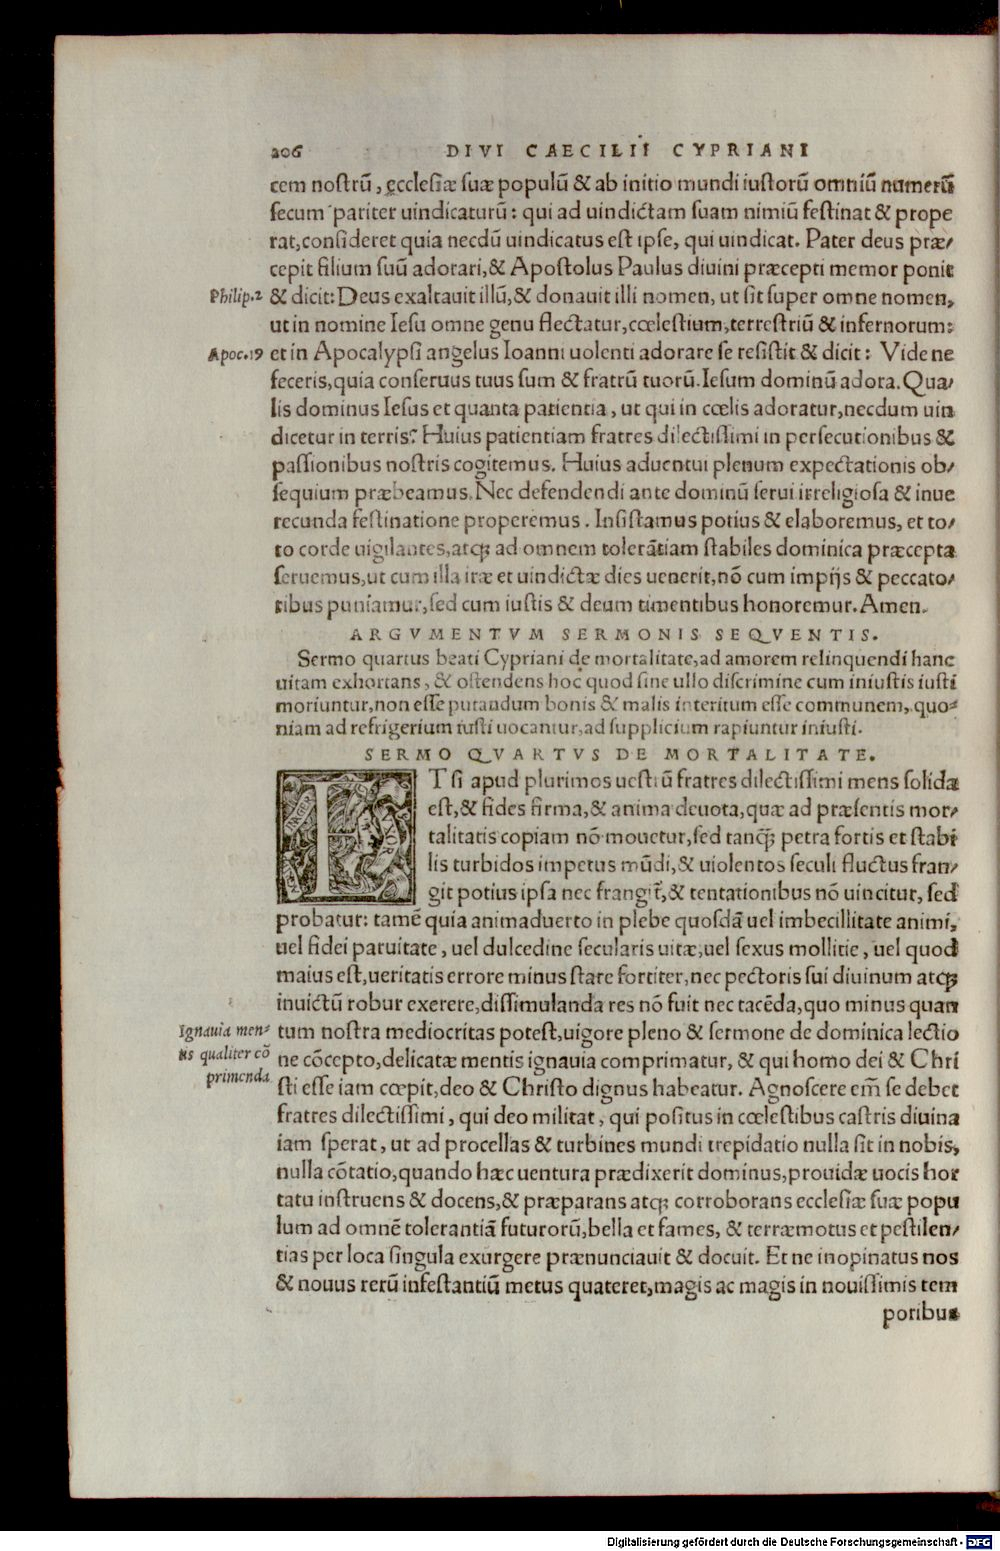 206 DIVI CAECILII CYPRIANI
cem nostrū, ęcclesiæ suæ populū & ab initio mundi iustorū omniū numerū
secum pariter uindicaturū: qui ad uindictam suam nimiū festinat & prope
rat, consideret quia necdū uindicatus est ipse, qui uindicat. Pater deus præ/
cepit filium suū adorari, & Apostolus Paulus diuini præcepti memor ponit
Philip.2 & dicit: Deus exaltauit illū, & donauit illi nomen, ut sit super omne nomen,
ut in nomine Iesu omne genu flectatur, cœlestium, terrestriū & infernorum:
Apoc.19 et in Apocalypsi angelus Ioanni uolenti adorare se resistit & dicit: Vide ne
feceris, quia conseruus tuus sum & fratrū tuorū. Iesum dominū adora. Qua/
lis dominus Iesus et quanta patientia, ut qui in cœlis adoratur, necdum uin
dicetur in terris? Huius patientiam fratres dilectissimi in persecutionibus &
passionibus nostris cogitemus. Huius aduentui plenum expectationis ob/
sequium præbeamus. Nec defendendi ante dominū serui irreligiosa & inue
recunda festinatione properemus. Insistamus potius & elaboremus, et to/
to corde uigilantes, atq; ad omnem tolerātiam stabiles dominica præcepta
seruemus, ut cum illa iræ et uindictæ dies uenerit, nō cum impijs & peccato/
ribus puniamur, sed cum iustis & deum timentibus honoremur. Amen.
ARGVMENTVM SERMONIS SEQVENTIS.
Sermo quartus beati Cypriani de mortalitate, ad amorem relinquendi hanc
uitam exhortans, & ostendens hoc quod sine ullo discrimine cum iniustis iusti
moriuntur, non esse putandum bonis & malis interitum esse communem, quo-
niam ad refrigerium iusti uocantur, ad supplicium rapiuntur iniusti.
SERMO QVARTVS DE MORTALITATE.
ET si apud plurimos uestiū fratres dilectissimi mens solida
est, & fides firma, & anima deuota, quæ ad præsentis mor/
talitatis copiam nō mouetur, sed tanq̄; petra fortis et stabi
lis turbidos impetus mūdi, & uiolentos seculi fluctus fran/
git potius ipsa nec frangit̄, & tentationibus nō uincitur, sed
probatur: tamē quia animaduerto in plebe quosdā uel imbecillitate animi,
uel fidei paruitate, uel dulcedine secularis uitæ, uel sexus mollitie, uel quod
maius est, ueritatis errore minus stare fortiter, nec pectoris sui diuinum atq;
inuictū robur exerere, dissimulanda res nō fuit nec tacēda, quo minus quan
Ignauia men- tum nostra mediocritas potest, uigore pleno & sermone de dominica lectio
tis qualiter cō ne cōcepto, delicatæ mentis ignauia comprimatur, & qui homo dei & Chri
primenda sti esse iam cœpit, deo & Christo dignus habeatur. Agnoscere em̄ se debet
fratres dilectissimi, qui deo militat, qui positus in cœlestibus castris diuina
iam sperat, ut ad procellas & turbines mundi trepidatio nulla sit in nobis,
nulla cōtatio, quando hæc uentura prædixerit dominus, prouidæ uocis hor
tatu instruens & docens, & præparans atq; corroborans ecclesiæ suæ popu
lum ad omnē tolerantiā futurorū, bella et fames, & terræmotus et pestilen/
tias per loca singula exurgere prænunciauit & docuit. Et ne inopinatus nos
& nouus rerū infestantiū metus quateret, magis ac magis in nouissimis tem
poribus
Digitalisierung gefördert durch die Deutsche Forschungsgemeinschaft - DFG